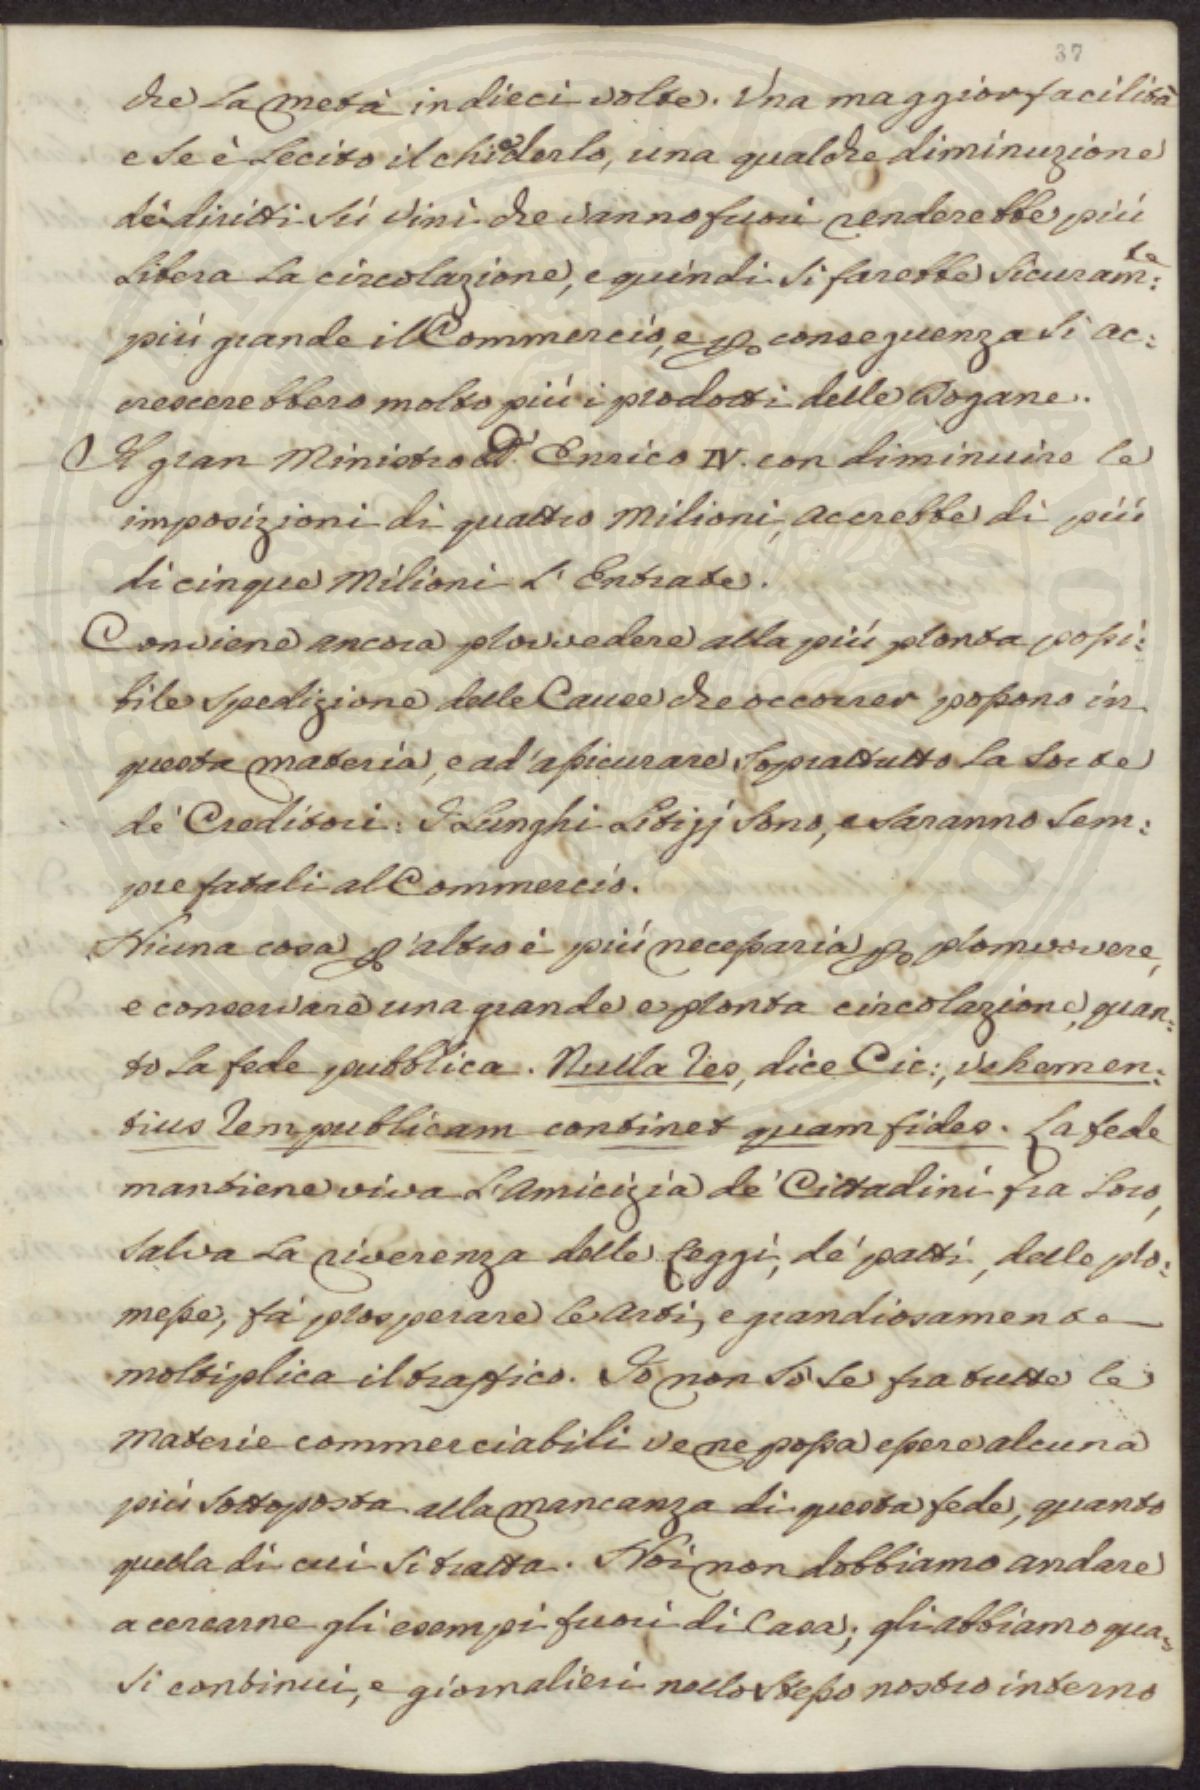 37
che la metà in dieci volte. Una maggior facilità
e se è lecito il chiederlo, una qualche diminuzione
dè diritti sù vini che vanno fuori renderebbe più
libera la circolazione, e quindi si farebbe sicuram:te
più grande il Commercio, e p conseguenza si ac:
crescerebbero molto più i prodotti delle Dogane.
Il gran Ministro d' Enrico IV. con diminuire le
imposizioni di quattro Milioni, accrebbe di più
di cinque Milioni l' Entrate.
Conviene ancora provvedere alla più pronta possi:
bile spedizione delle Cause che occorrer possono in
questa materia, e ad' assicurare soprattutto la sorte
de' Creditori: I lunghi Litigj sono, e saranno sem:
pre fatali al Commercio.
Niuna cosa p altro è più necessaria p promuovere,
e conservare una grande e pronta circolazione, quan:
to la fede pubblica. Nulla res, dice Cic:, vehemen:
tius rempublicam continet quam fides. La fede
mantiene viva l'amicizia de' Cittadini fra loro,
salva la riverenza delle Leggi, de' patti, delle pro:
messe, fà prosperare le arti, e grandiosamente
moltiplica il traffico. Io non sò se fra tutte le
materie commerciabili ve ne possa essere alcuna
più sottoposta alla mancanza di questa fede, quanto
quella di cui si tratta. Noi non dobbiamo andare
a cercarne gli esempi fuori di Casa; gli abbiamo qua:
si continui, e giornalieri nello stesso nostro interno